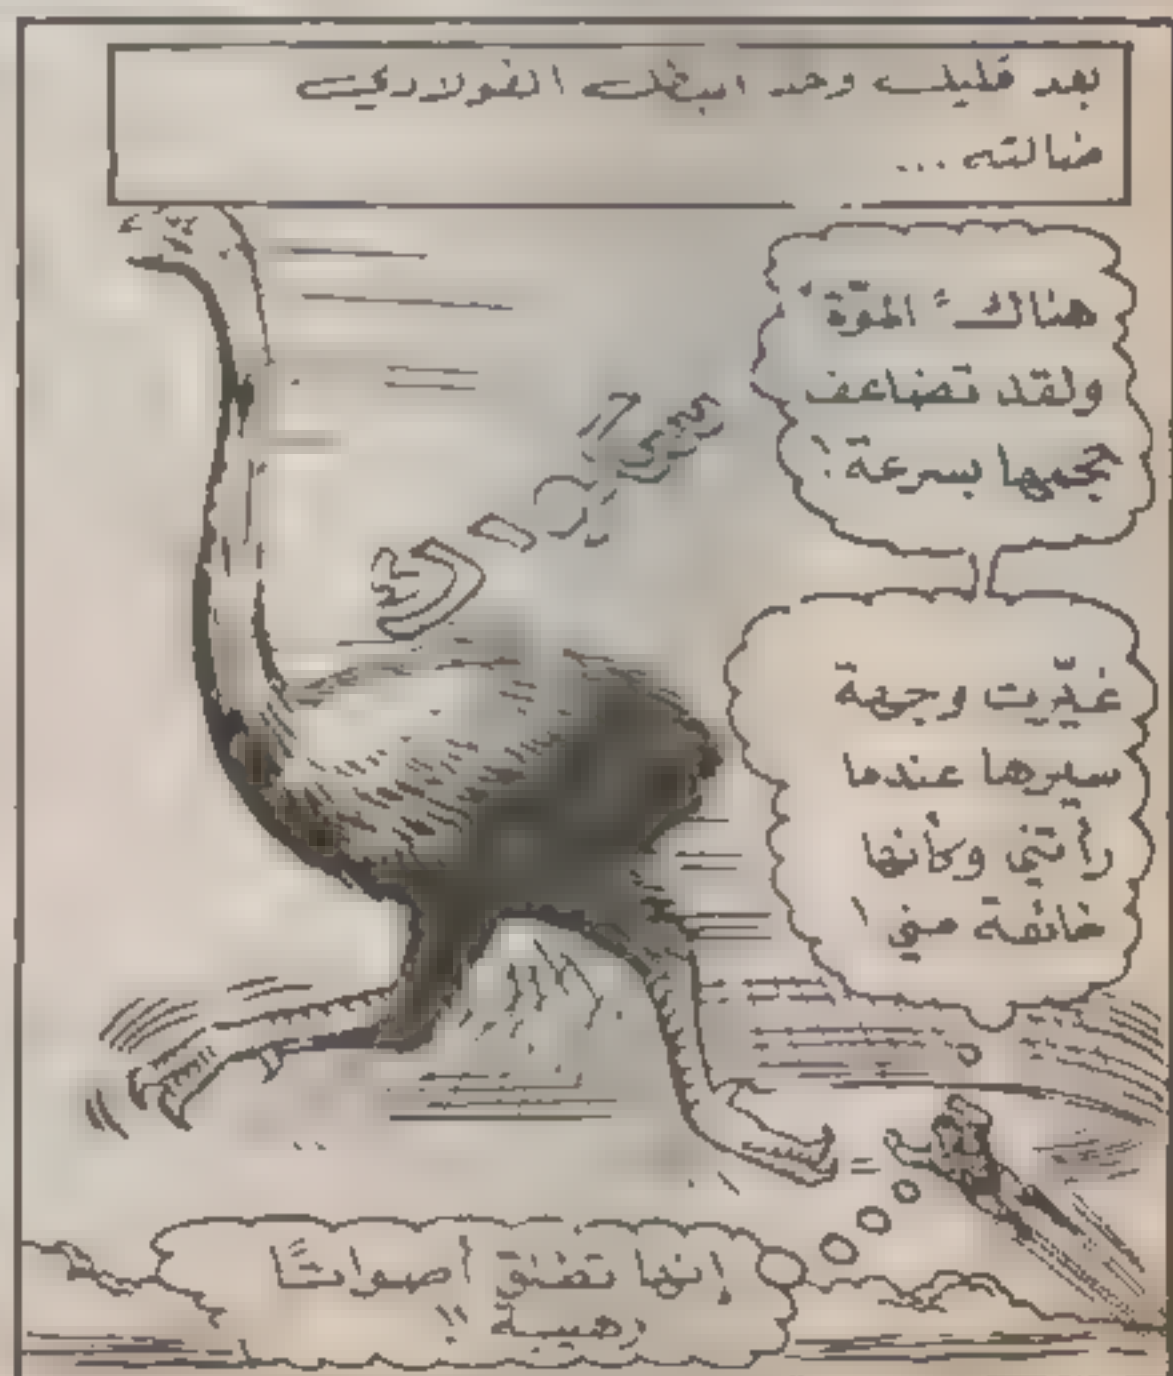 بعد قليل وجد البطل الفولاذي
ضالته ...
هناك المرّة
ولقد تضاعف
حجمها بسرعة!
غيّرت وجهة
سيرها عندما
رأتني وكأنها
خائفة مني!
إنها تطلق أصواتًا
رهيبة!!